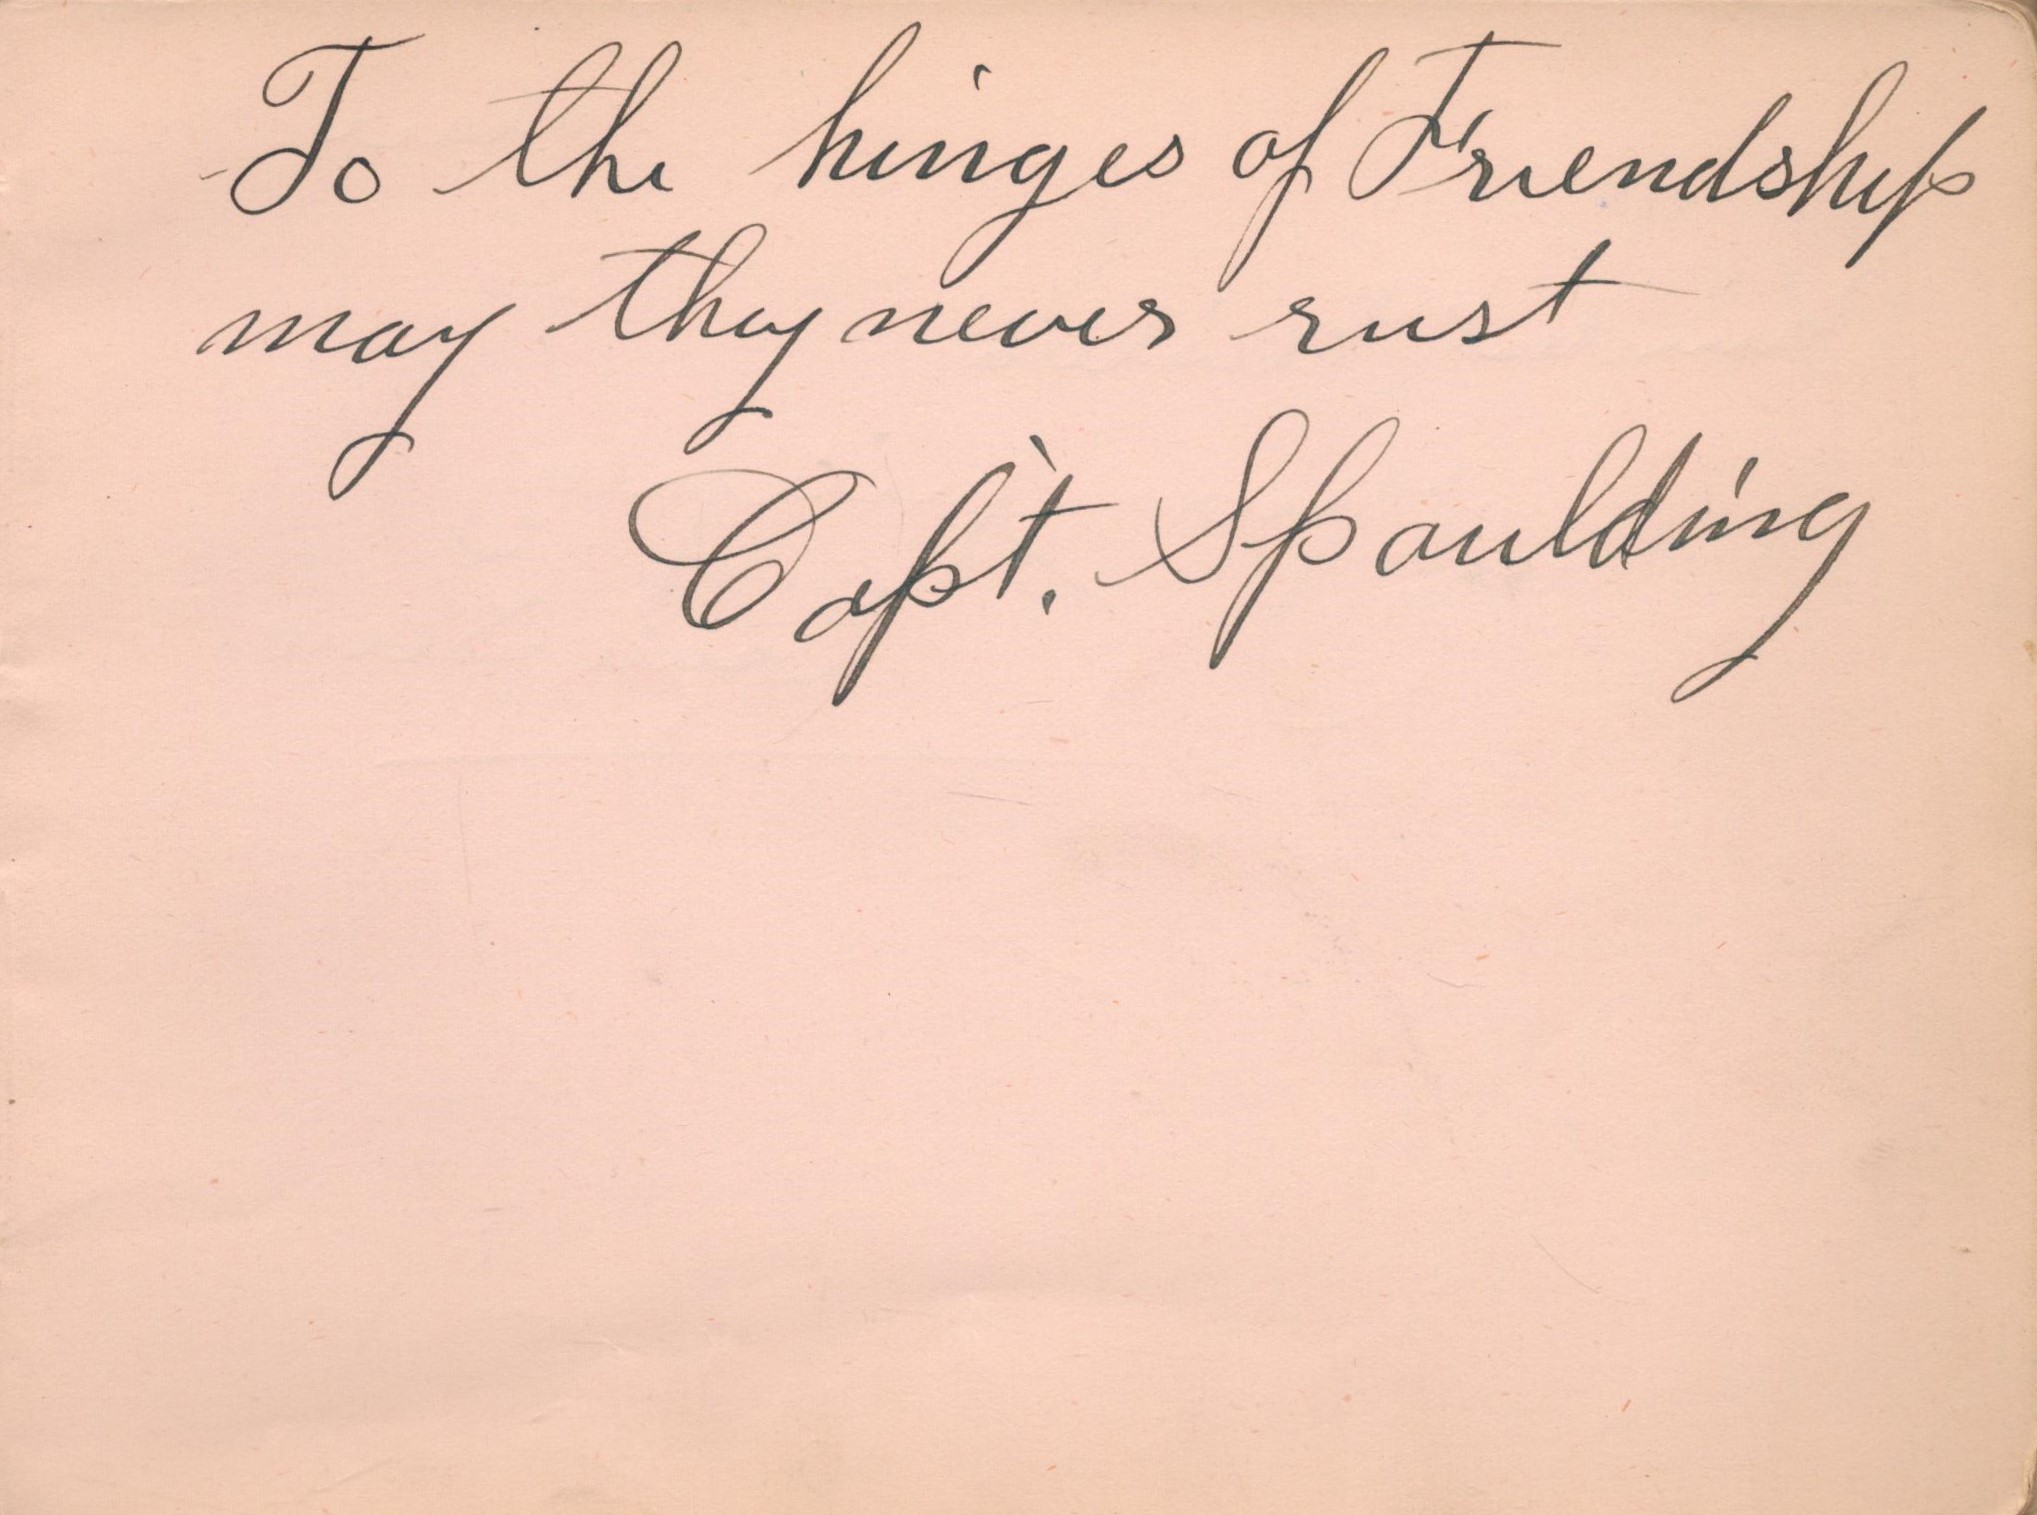 To the hinges of Friendship
may they never rust
Cap't. Spaulding